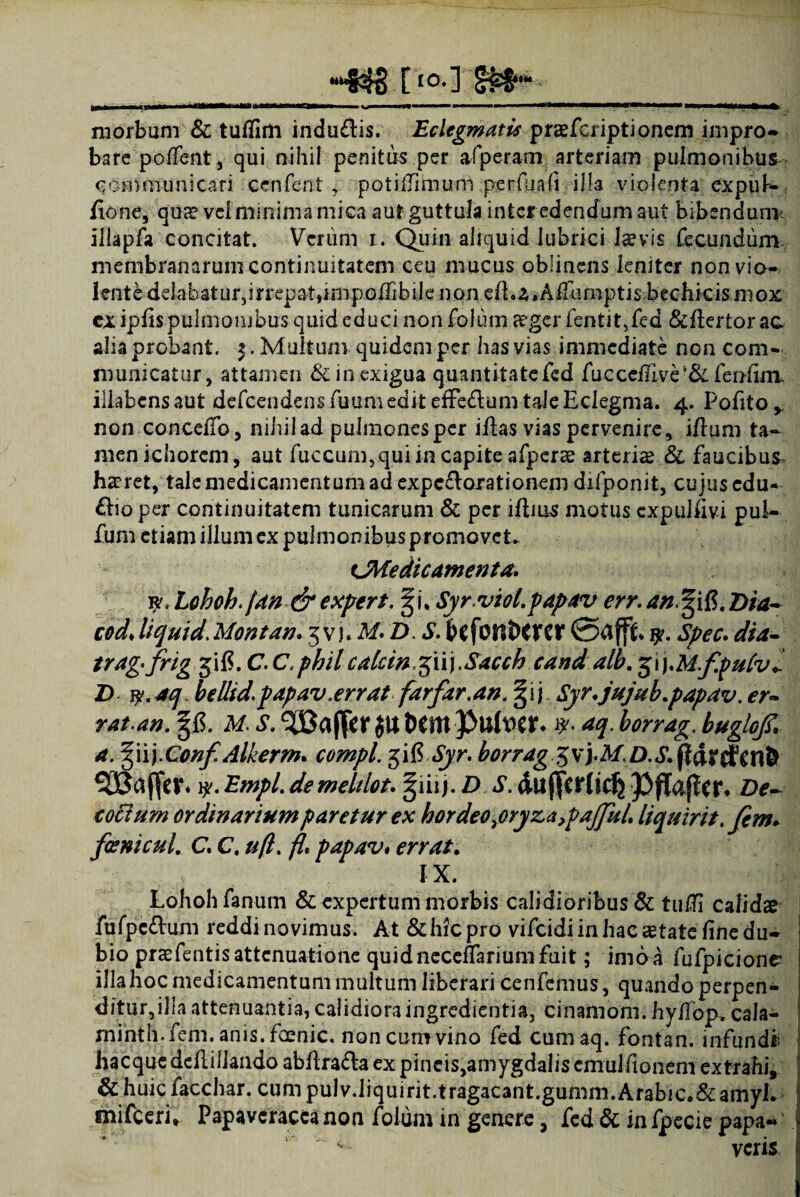 [10.]
morbum & tuſſim inductis. Eclegmatis præſcriptionem impro-
bare poſſent, qui nihil penitus per aſperam arteriam pulmonibus
communicari cenſent, potiſſimum perſuaſi illa violenta expul-
ſione, quæ vel minima mica aut guttula inter edendum aut bibendum
illapſa concitat. Verùm 1. Quin aliquid lubrici lævis ſecundùm
membranarum continuitatem ceu mucus oblinens leniter non vio-
lentè delabatur, irrepat, impoſſibile non eſt. 2. Aſſumptis bechicis mox
ex ipſis pulmonibus quid educi non ſolùm æger ſentit, ſed & ſtertor ac
alia probant. 3. Multum quidem per has vias immediatè non com-
municatur, attamen & in exigua quantitate ſed ſucceſſivè & ſenſim
illabens aut deſcendens ſuum edit effectum tale Eclegma. 4. Poſito,
non conceſſo, nihil ad pulmones per iſtas vias pervenire, iſtum ta-
men ichorem, aut ſuccum, qui in capite aſperæ arteriæ & faucibus
hæret, tale medicamentum ad expectorationem diſponit, cujus edu-
ctio per continuitatem tunicarum & per iſtius motus expulſivi pul-
ſum etiam illum ex pulmonibus promovet.
Medicamenta.
℞. Lohoh. ſan & expert. ℥i. Syr. viol. papav err. an. ℥iß. Dia-
cod. liquid. Montan. ʒvj. M. D. S. beſonderer Safft. ℞. Spec. dia-
trag. frig ʒiß. C. C. phil calcin. ʒiij. Sacch cand alb. ʒij. M. f. pulv.
D ℞. aq bellid. papav. errat farfar. an. ℥ij Syr. jujub. papav. er-
rat. an. ℥ß. M. S. Waſſer zu dem Pulver. ℞. aq. borrag. bugloſſ.
a. ℥iij. Conf. Alkerm. compl. ʒiß Syr. borrag ʒvj. M. D. S. ſtärckend
Waſſer. ℞. Empl. de melilot. ℥iiij. D S. äuſſerlich Pflaſter. De-
coctum ordinarium paretur ex hordeo, oryza, paſſul. liquirit. ſem.
fœnicul. C. C. uſt. fl. papav. errat.
IX.
Lohoh ſanum & expertum morbis calidioribus & tuſſi calidæ
ſuſpectum reddi novimus. At & hîc pro viſcidi in hac ætate ſine du-
bio præſentis attenuatione quid neceſſarium fuit; imò à ſuſpicione
illa hoc medicamentum multum liberari cenſemus, quando perpen-
ditur, illa attenuantia, calidiora ingredientia, cinamom. hyſſop. cala-
minth. ſem. anis. fœnic. non cum vino ſed cum aq. fontan. infundi
hacque deſtillando abſtracta ex pineis, amygdalis emulſionem extrahi,
& huic ſacchar. cum pulv. liquirit. tragacant. gumm. Arabic. & amyl.
miſceri. Papaveracea non ſolùm in genere, ſed & in ſpecie papa-
veris